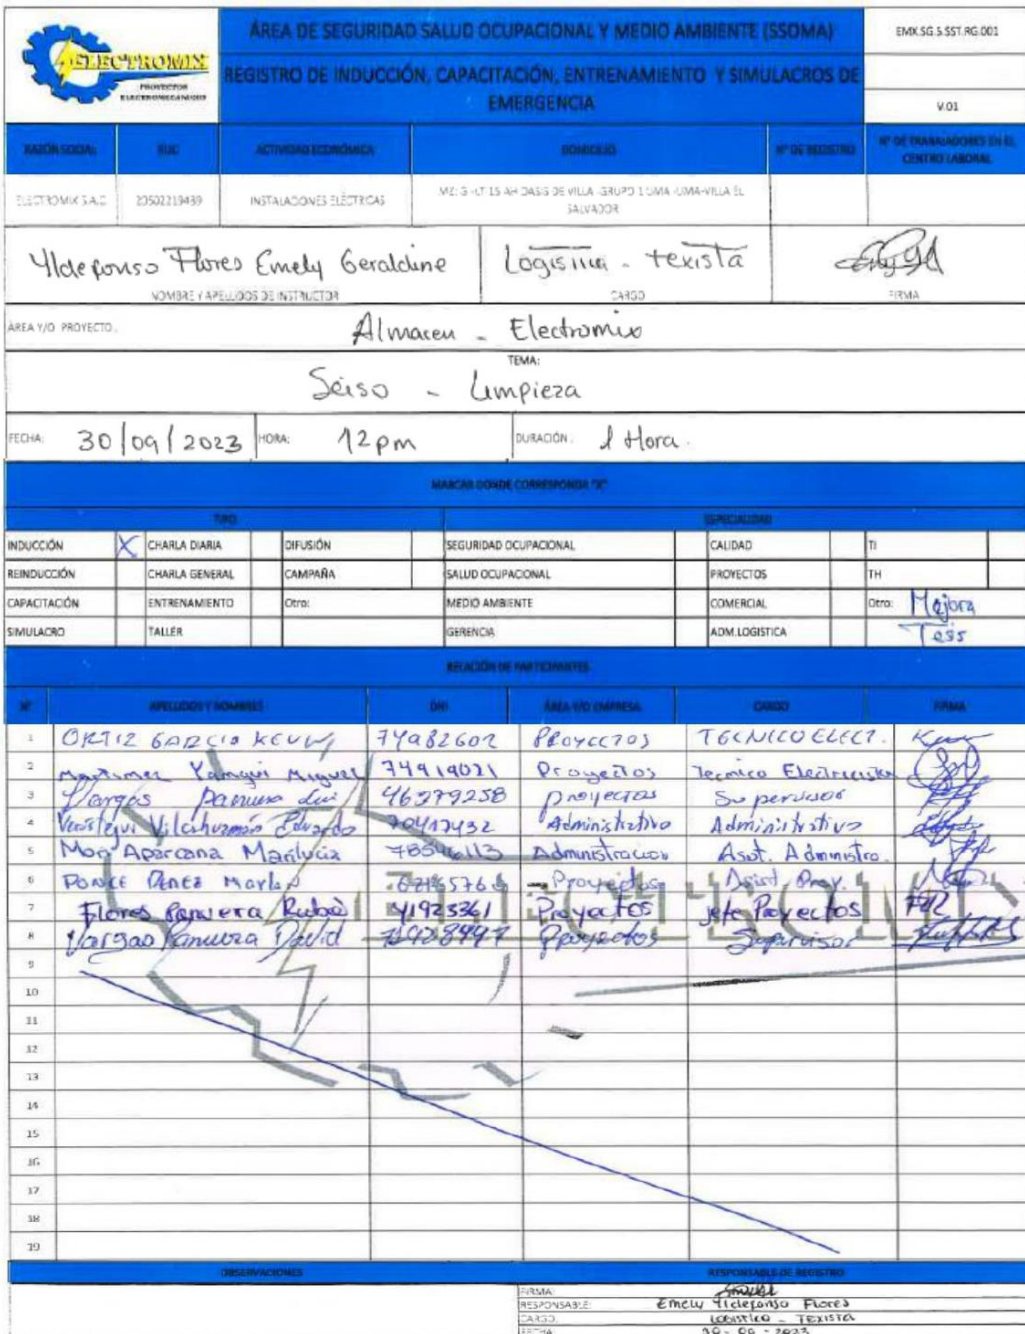 ELECTROMIX
PROYECTOS
ELECTROMECANICOS
ÁREA DE SEGURIDAD SALUD OCUPACIONAL Y MEDIO AMBIENTE (SSOMA)
REGISTRO DE INDUCCIÓN, CAPACITACIÓN, ENTRENAMIENTO Y SIMULACROS DE
EMERGENCIA
EMX.SG.S.SST.RG.001
V.01
RAZÓN SOCIAL RUC ACTIVIDAD ECONÓMICA DOMICILIO N° DE REGISTRO N° DE TRABAJADORES EN EL
CENTRO LABORAL
ELECTROMIX S.A.C. 20502219489 INSTALACIONES ELÉCTRICAS OASIS DE VILLA GRUPO 1 LIMA -LIMA-VILLA EL
SALVADOR
Yldefonso Flores Emely Geraldine Logistica - texista
NOMBRE Y APELLIDOS DE INSTRUCTOR CARGO FIRMA
ÁREA Y/O PROYECTO: Almacen - Electromix
TEMA:
Seiso - Limpieza
FECHA: 30/09/2023 HORA: 12pm DURACIÓN: 1 Hora.
MARCAR DONDE CORRESPONDA "X"
TIPO ESPECIALIDAD
INDUCCIÓN X CHARLA DIARIA DIFUSIÓN SEGURIDAD OCUPACIONAL CALIDAD TI
REINDUCCIÓN CHARLA GENERAL CAMPAÑA SALUD OCUPACIONAL PROYECTOS TH
CAPACITACIÓN ENTRENAMIENTO Otro: MEDIO AMBIENTE COMERCIAL Otro: Mejora
SIMULACRO TALLER GERENCIA ADM.LOGISTICA Tesis
RELACIÓN DE PARTICIPANTES
N° APELLIDOS Y NOMBRES DNI ÁREA Y/O EMPRESA CARGO FIRMA
1 ORTIZ GARCIA 74982602 PROYECTOS TECNICO ELECT.
2 Yamqui Miguel 74919021 Proyectos Tecnico Electricista
3 Vargas Panuera 46379258 proyectos Supervisor
4 Eduardo 70417432 Administrativo Administrativo
5 Aparcana Marilucia Administracion Asist. Administra.
6 PONCE PEREZ Proyectos
7 Flores Panuera 41923361 Proyectos Jefe Proyectos
8 Vargas Panuera David Proyectos Supervisor
9
10
11
12
13
14
15
16
17
18
19
ELECTROMIX
OBSERVACIONES RESPONSABLE DE REGISTRO
FIRMA:
RESPONSABLE: Emely Yldefonso Flores
CARGO: Logistico - Texista
FECHA: 30 - 09 - 2023